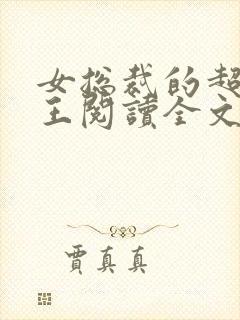 女总裁的超
王閱讀全文
賈真真